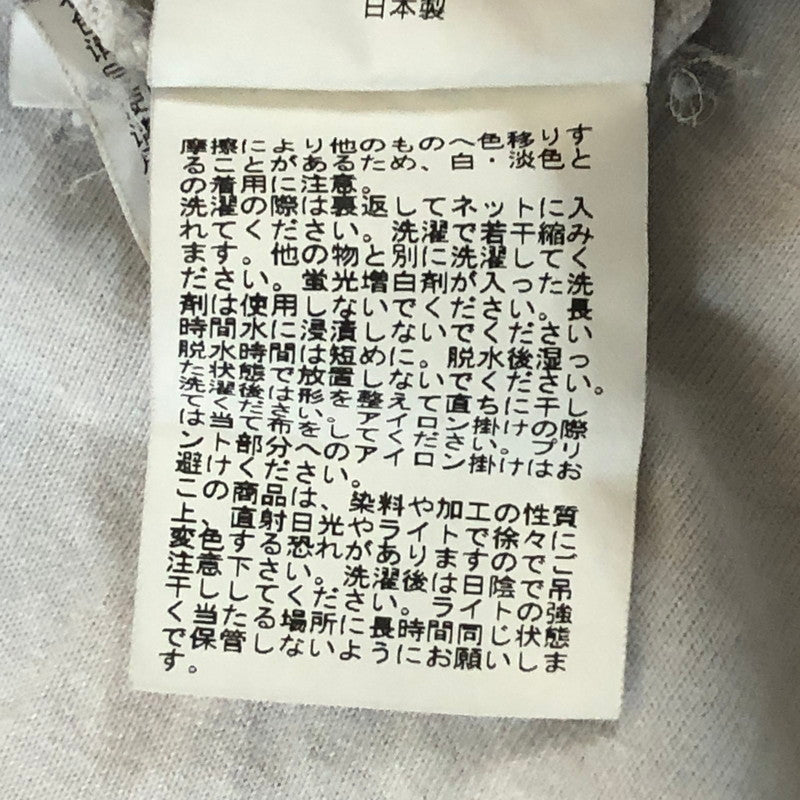 日本製
摩擦により他のものへ色移りす
ることがあるため、白・淡色と
の着用に注意。
洗濯の際は裏返してネットに入
れてください。洗濯で若干縮み
ます。他の物と別に洗濯してく
ださい。蛍光増白剤が入った洗
剤は使用しないでください。長
時間水に浸漬しないでください
脱水時間は短めに。脱水後湿っ
た状態で放置しないでください。
洗濯後は形を整えて直ちに干し
てください。アイロン掛けの際
は当て布をしてください。プリ
ント部分へのアイロン掛けはお
避けください。
この商品は、染料や加工の性質
上、直射日光やライトで徐々に
変色する恐れがありますのでご
注意下さい。洗濯後は日陰で吊
干ししてください。ライトの強
く当たる場所に長時間同じ状態
で保管しないようにお願いしま
す。